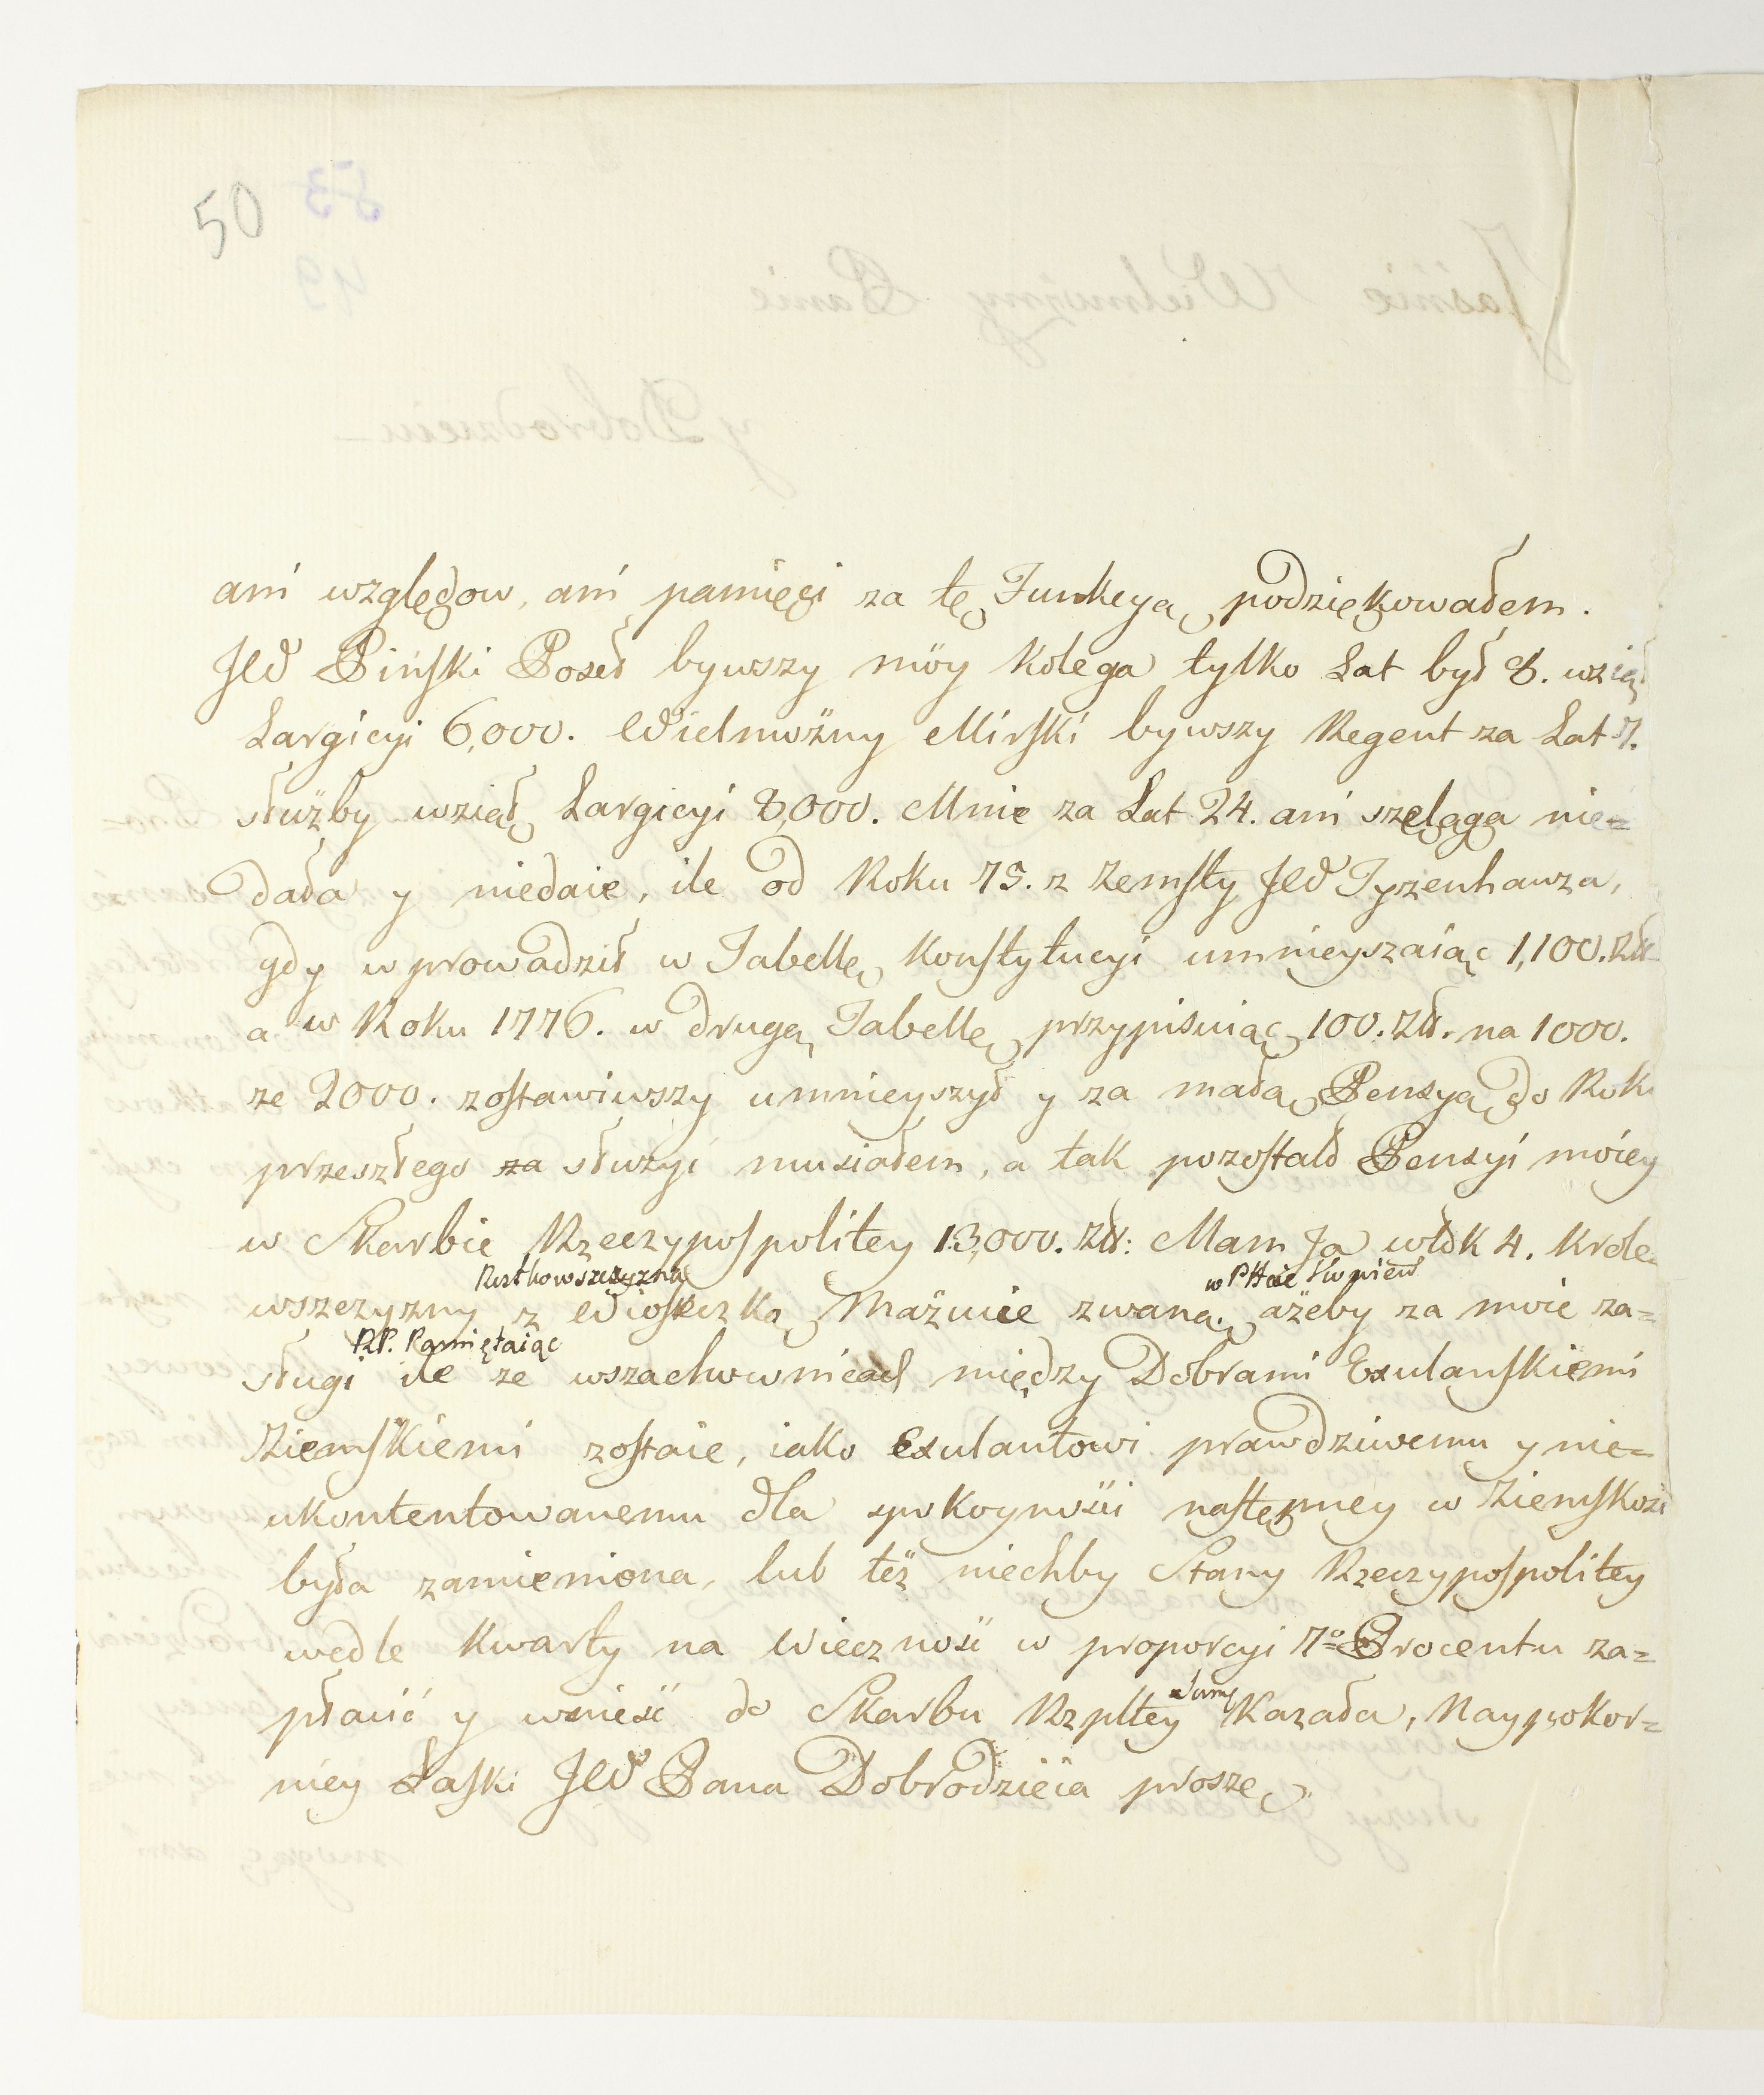 50
ani względow, ani pamięci za tę Funkcyą podziękowałem.
JW Piński Poseł bywszy möy Kolega tylko Lat był 8. wziął
Largicyi 6,000. Wielmożny Mirski bywszy Regent za Lat 7.
służby wziął Largicyi 8,000. Mnie za Lat 24. ani szeląga nie=
dała y niedaie, ile od Roku 75. z zemsty JW Tyzenhauza,
gdy wprowadził w Tabellę Konstytucyi umnieyszaiąc 1,100. Zł
a w Roku 1776. w drugą Tabellę przypisuiąc 100. Zł. na 1000.
ze 2000. zostawiwszy umnieyszył y za małą Pensyą do Roku
przeszłego za służyć musiałem, a tak pozostało Pensyi moiey
w Skarbie Rzeczypospolitey 13,000. Zł: Mam Ja włok 4. Krole
Rutkowszczyzna w Pttcie
wszczyzny z Wioseczką Maźuie zwaną, ażeby za moie za=
RP. Pamiętaiąc
sługi ile ze wszachownicach między Dobrami Exulanskiemi
Ziemskiemi zostaie, iako Exulantowi prawdziwemu y nie=
ukontentowanemu dla spokoynosci następney w Ziemskość
była zamieniona, lub też niechby Stany Rzeczypospolitey
wedle Kwarty na Wieczność w proporcyi 7º Procentu za=
płacić y wnieść do Skarbu Rzpltey Kazała, Naypokor=
niey Łaski JW Pana Dobrodzieia proszę